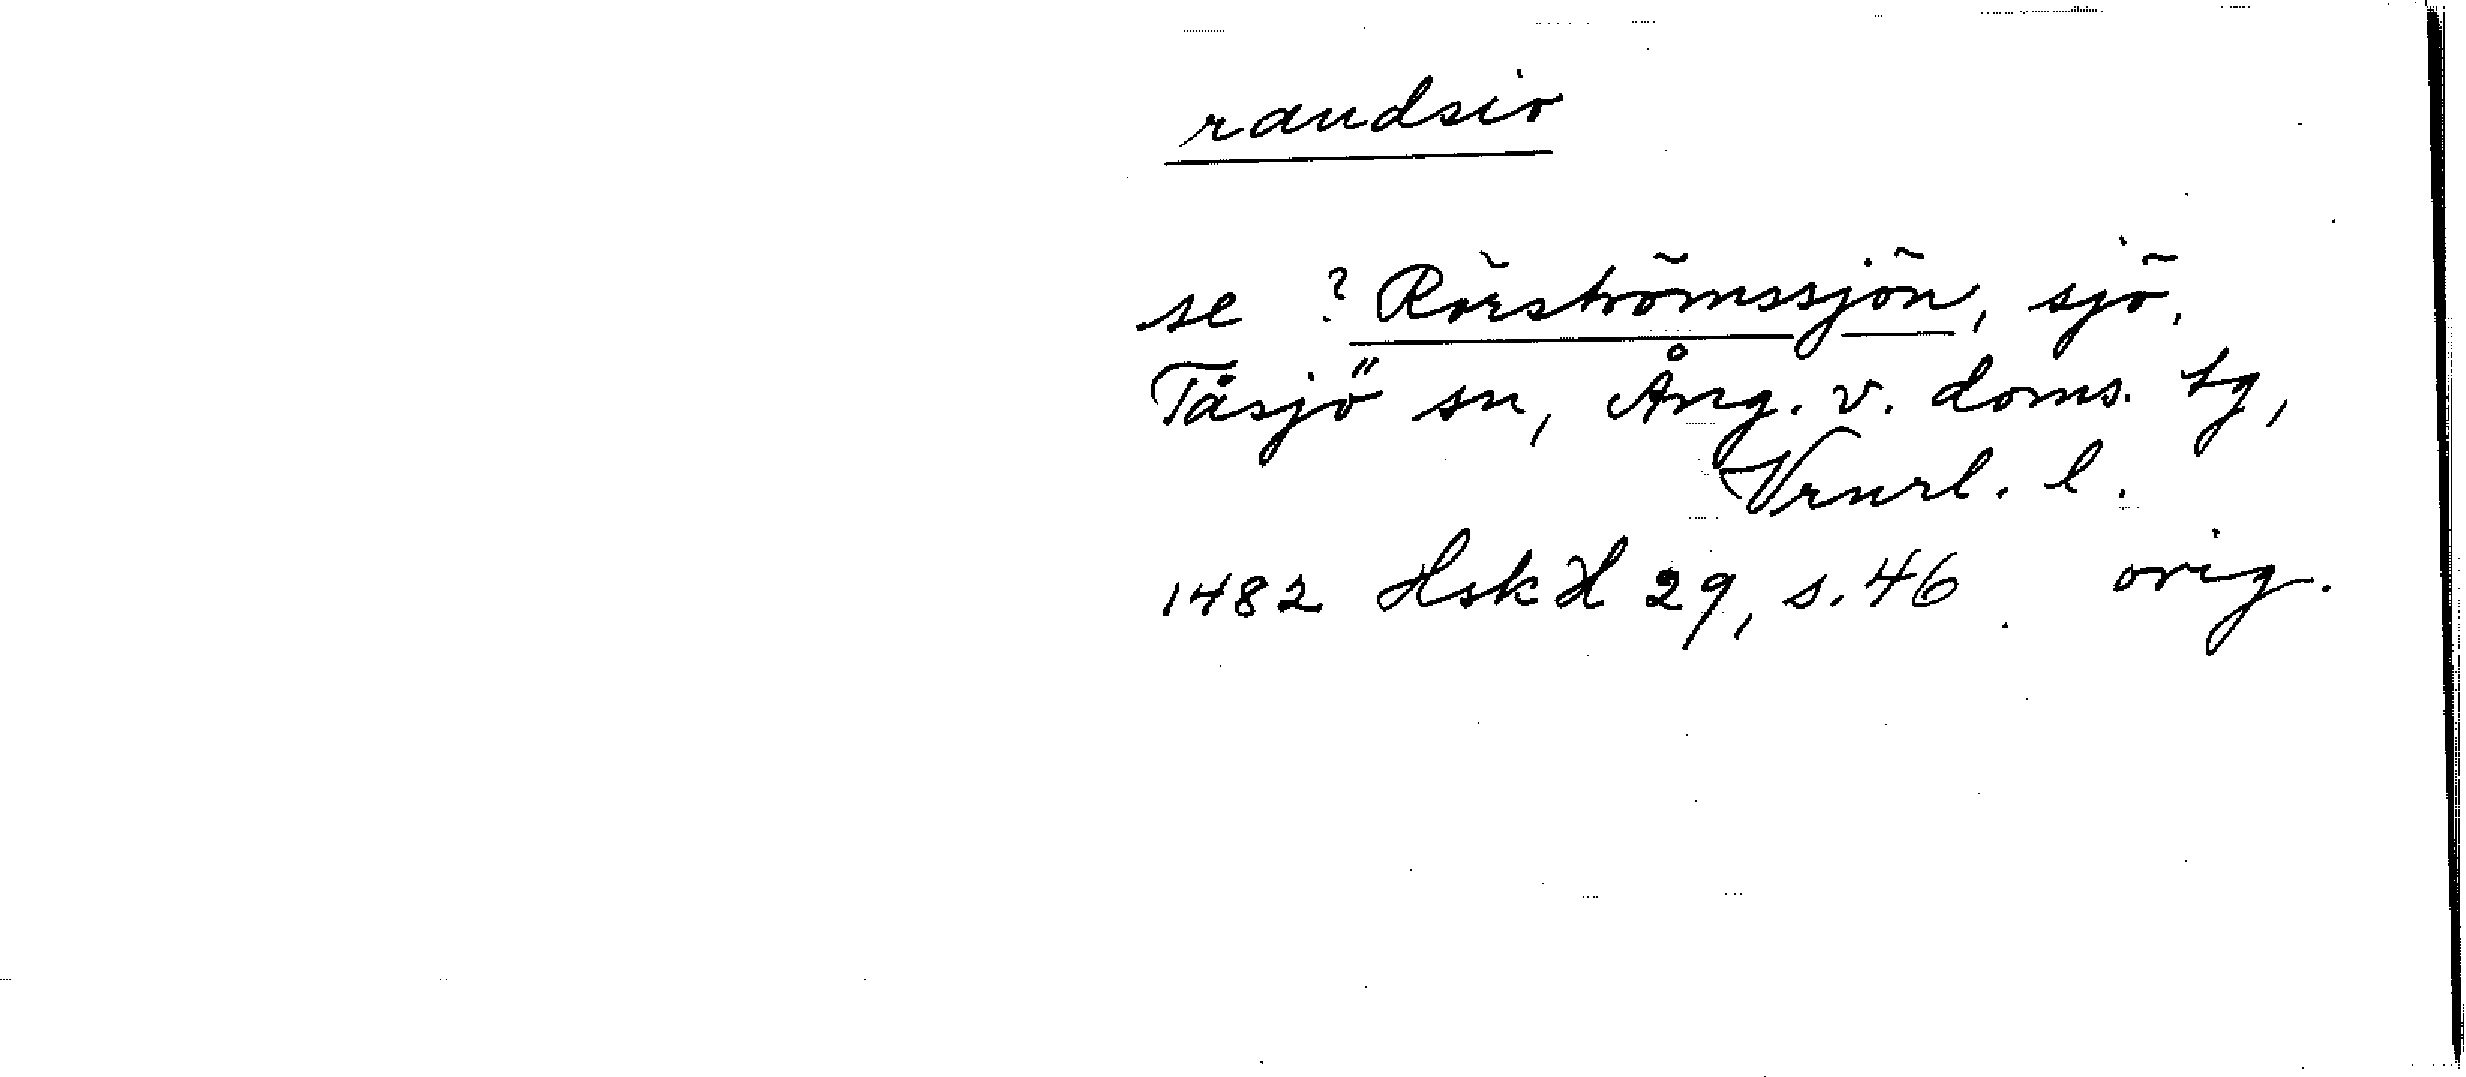 randsio
se ? Rörströmssjön, sjö,
Tåsjö sn, Ång. v. doms. tg,
Vrnrl. l.
1482 HskH 29, s. 46 orig.